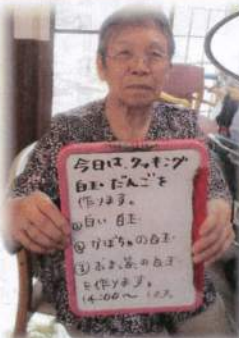 今日は、クッキング
白玉だんごを
作ります。
①白い白玉
②かぼちゃの白玉
③の白玉
を作ります。
14:00〜